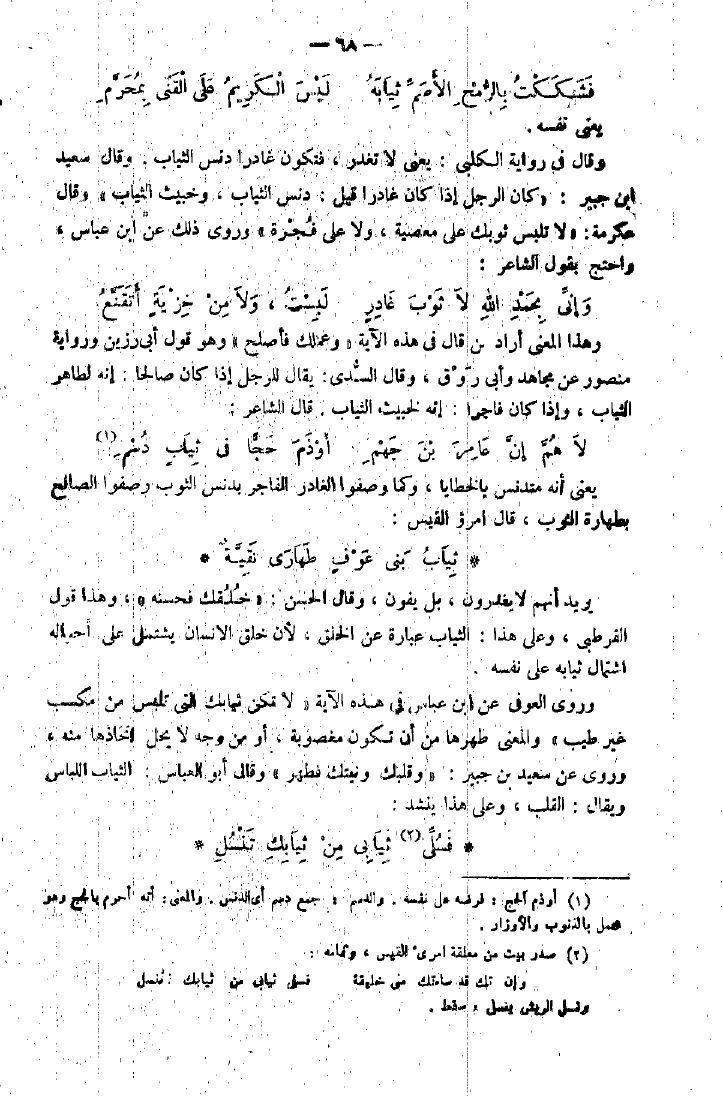 — ٦٨ —
فَشَكَكْتُ بِالرُّمْحِ الأَصَمِّ ثِيَابَهُ لَيْسَ الْكَرِيمُ عَلَى الْقَنَى بِمُحَرَّمِ
يعنى نفسه .
وقال فى رواية الكلبى : يعنى لا تغدر ، فتكون غادرا دنس الثياب . وقال سعيد
ابن جبير : «كان الرجل إذا كان غادرا قيل : دنس الثياب ، وخبيث الثياب» وقال
عكرمة: «لا تلبس ثوبك على معصية ، ولا على فُجْرة» وروى ذلك عن ابن عباس ،
واحتج بقول الشاعر :
وَإِنِّى بِحَمْدِ اللهِ لاَ ثَوْبَ غَادِرٍ لَبِسْتُ ، وَلاَ مِنْ خِزْيَةٍ أَتَقَنَّعُ
وهذا المعنى أراد من قال فى هذه الآية «وعملك فأصلح» وهو قول أبى رزين ورواية
منصور عن مجاهد وأبى روق ، وقال السُّدى: يقال للرجل إذا كان صالحا : إنه لطاهر
الثياب ، وإذا كان فاجرا : إنه لخبيث الثياب . قال الشاعر :
لاَ هُمَّ إِنَّ عَامِرَ بْنَ جَهْمِ أَوْذَمَ حَجًّا فى ثِيَابٍ دُسْمِ (١)
يعنى أنه متدنس بالخطايا ، وكما وصفوا الغادر الفاجر بدنس الثوب وصفوا الصالح
بطهارة الثوب ، قال امرؤ القيس :
* ثِيَابُ بَنى عَوْفٍ طَهَارَى نَقِيَّةٌ *
يريد أنهم لا يغدرون ، بل يفون ، وقال الحسن : «خُلُقك فحسنه» ، وهذا قول
القرطبى ، وعلى هذا : الثياب عبارة عن الخلق ، لأن خلق الانسان يشتمل على أحواله
اشتمال ثيابه على نفسه .
وروى العوفى عن ابن عباس فى هذه الآية « لا تكن ثيابك التى تلبس من مكسب
غير طيب » والمعنى طهرها من أن تكون مغصوبة ، أو من وجه لا يحل اتخاذها منه ،
وروى عن سعيد بن جبير : «وقلبك ونيتك فطهر» وقال أبو العباس : الثياب اللباس
ويقال : القلب ، وعلى هذا ينشد :
* فَسُلِّى (٢) ثِيَابِى مِنْ ثِيَابِكِ تَنْسُلِ *
(١) أوذم الحج : فرضه على نفسه . والدسم : جمع دسم أى الدنس . والمعنى : أنه أحرم بالحج وهو
محمل بالذنوب والأوزار .
(٢) صدر بيت من معلقة امرئ القيس ، وتمامه :
وإن تك قد ساءتك منى خليقة فسلى ثيابى من ثيابك تنسل
ونسل الريش ينسل : سقط .